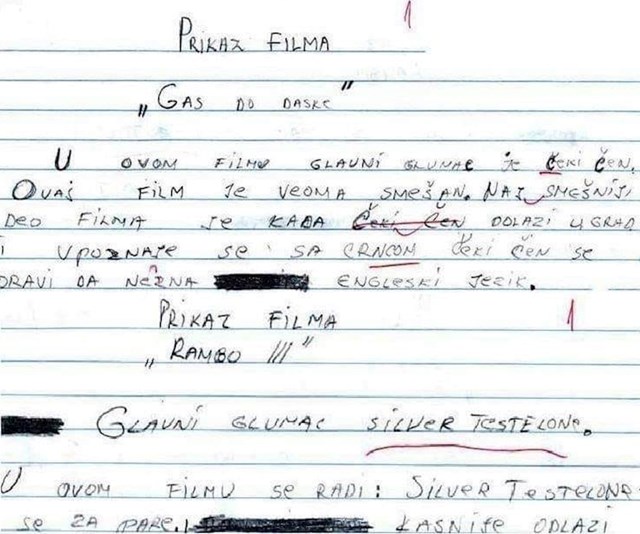 1
PRIKAZ FILMA
„GAS DO DASKE"
U OVOM FILMU GLAVNI GLUMAC JE ČEKI ČEN.
OVAJ FILM JE VEOMA SMEŠAN. NAJ SMEŠNIJI
DEO FILMA JE KADA ČEKI ČEN DOLAZI U GRAD
I UPOZNAJE SE SA CRNCOM ČEKI ČEN SE
PRAVI DA NEZNA ENGLESKI JEZIK.
PRIKAZ FILMA 1
„RAMBO III"
GLAVNI GLUMAC SILVER TESTELONE.
U OVOM FILMU SE RADI: SILVER TESTELONE
SE ZA PARE. KASNIJE ODLAZI